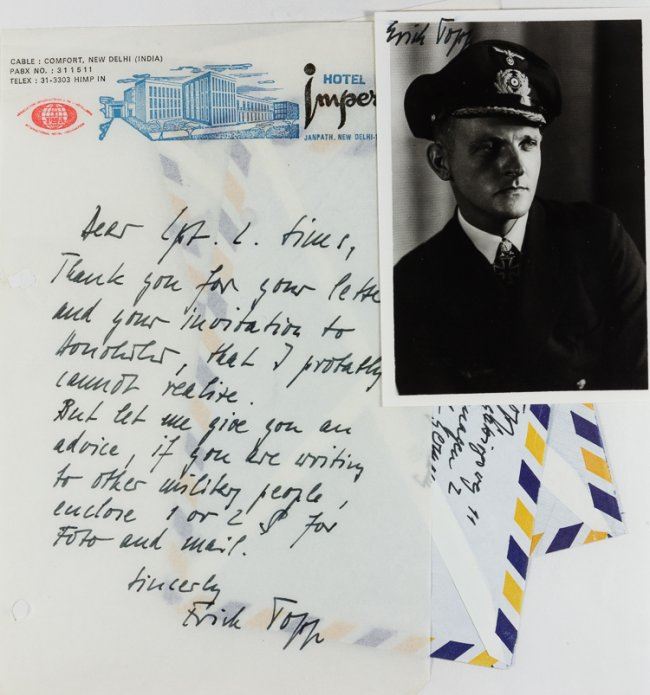 CABLE : COMFORT, NEW DELHI (INDIA)
PABX NO. : 311511
TELEX : 31-3303 HIMP IN
HOTEL
Imper
JANPATH, NEW DELHI-1
Erich Topp
Dear Cpt. L. Sims,
Thank you for your lette
and your invitation to
Honolulu, that I probably
cannot realise.
But let me give you an
advice, if you are writing
to other military people,
enclose 1 or 2 $ for
Foto and mail.
Sincerly
Erich Topp
11
2